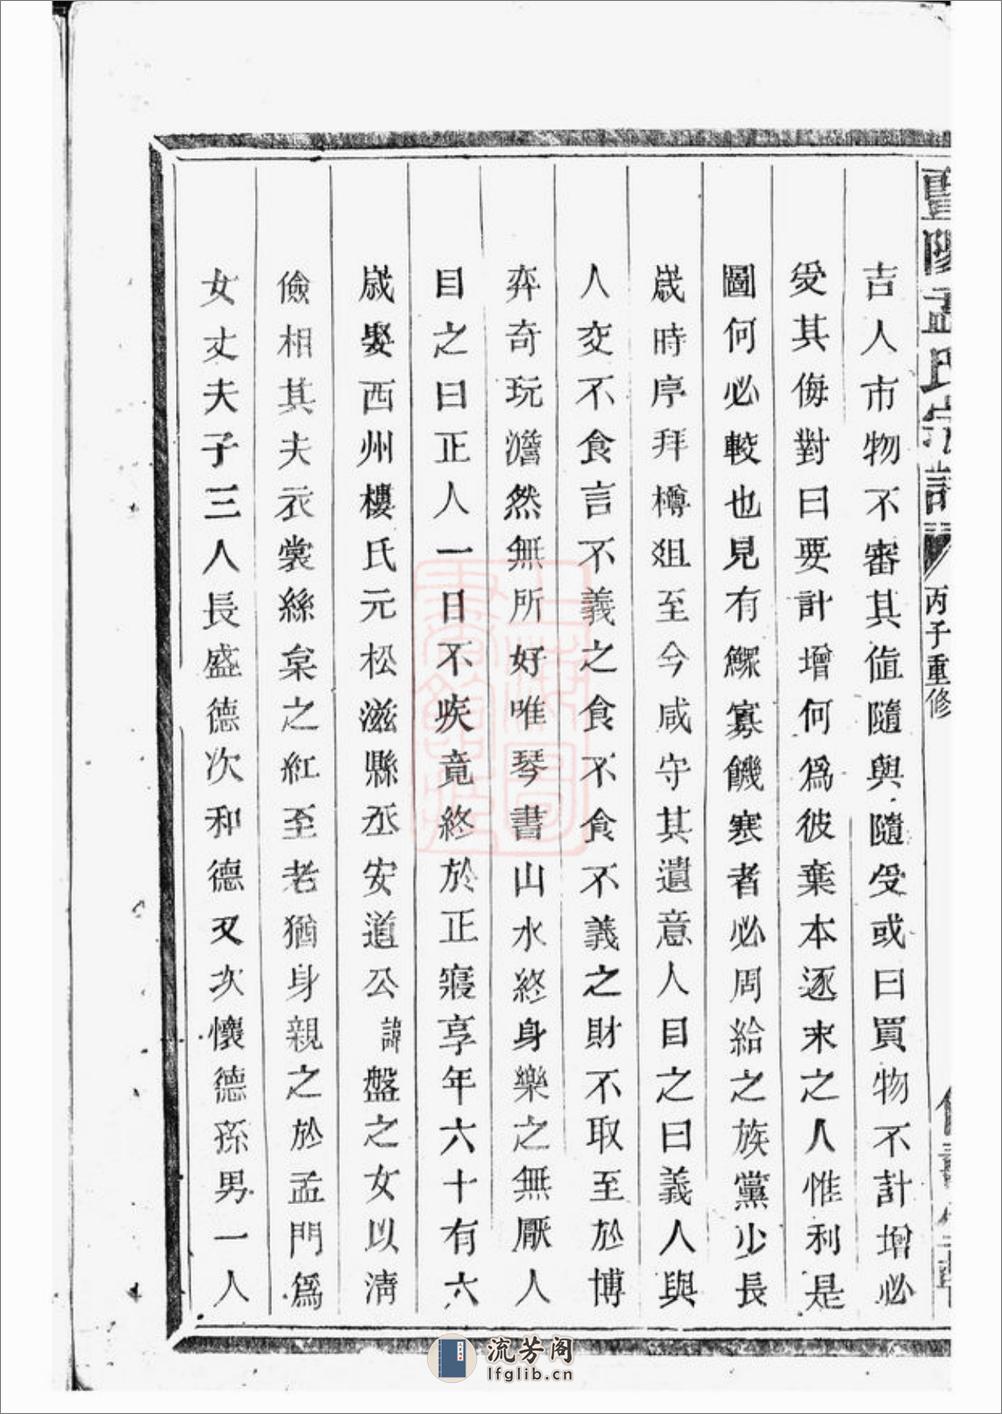 暨陽孟氏宗譜 丙子重修
吉人市物不審其值隨與隨受或曰買物不計增必
受其侮對曰要計增何爲彼棄本逐末之人惟利是
圖何必較也見有鰥寡饑寒者必周給之族黨少長
歲時序拜樽俎至今咸守其遺意人目之曰義人與
人交不食言不義之食不食不義之財不取至於博
弈奇玩澹然無所好唯琴書山水終身樂之無厭人
目之曰正人一日不疾竟終於正寢享年六十有六
歲娶西州樓氏元松滋縣丞安道公諱盤之女以淸
儉相其夫衣裳絲枲之紅至老猶身親之於孟門爲
女丈夫子三人長盛德次和德又次懷德孫男一人
流芳阁
lfglib.cn